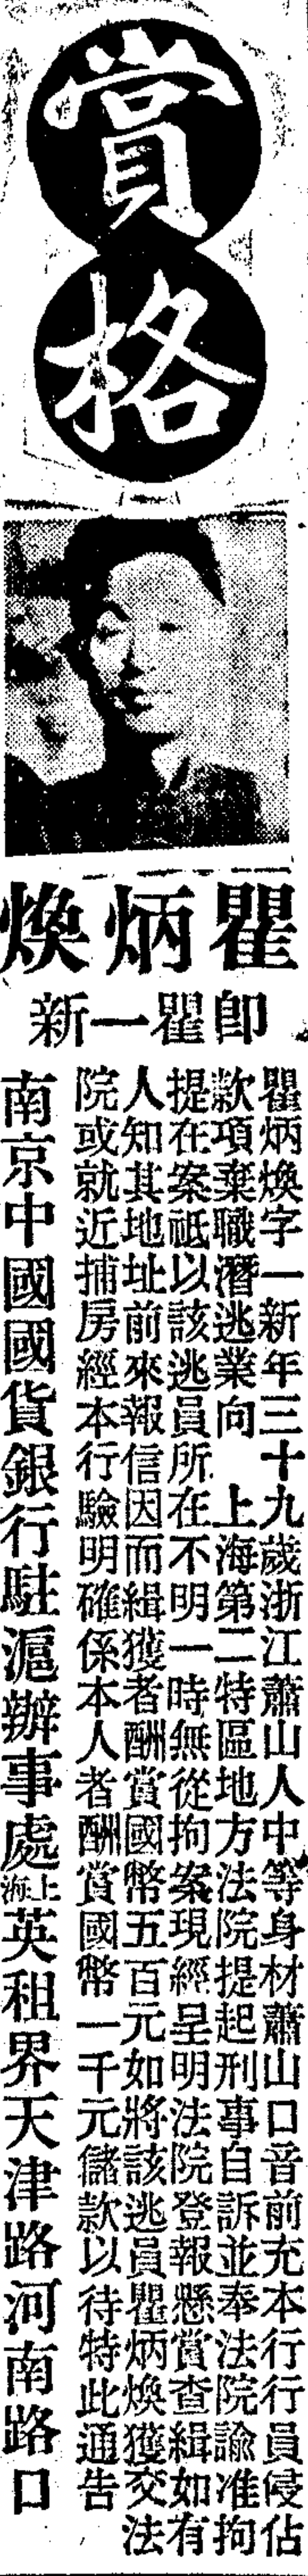 賞格
瞿炳煥
即瞿一新
瞿炳煥字一新年三十九歲浙江蕭山人中等身材蕭山口音前充本行行員侵佔
款項棄職潛逃業向　上海第二特區地方法院提起刑事自訴並奉法院諭准拘
提在案祗以該逃員所在不明一時無從拘案現經呈明法院登報懸賞查緝如有
人知其地址前來報信因而緝獲者酬賞國幣五百元如將該逃員瞿炳煥獲交法
院或就近捕房經本行驗明確係本人者酬賞國幣一千元儲款以待特此通告
南京中國國貨銀行駐滬辦事處上海英租界天津路河南路口